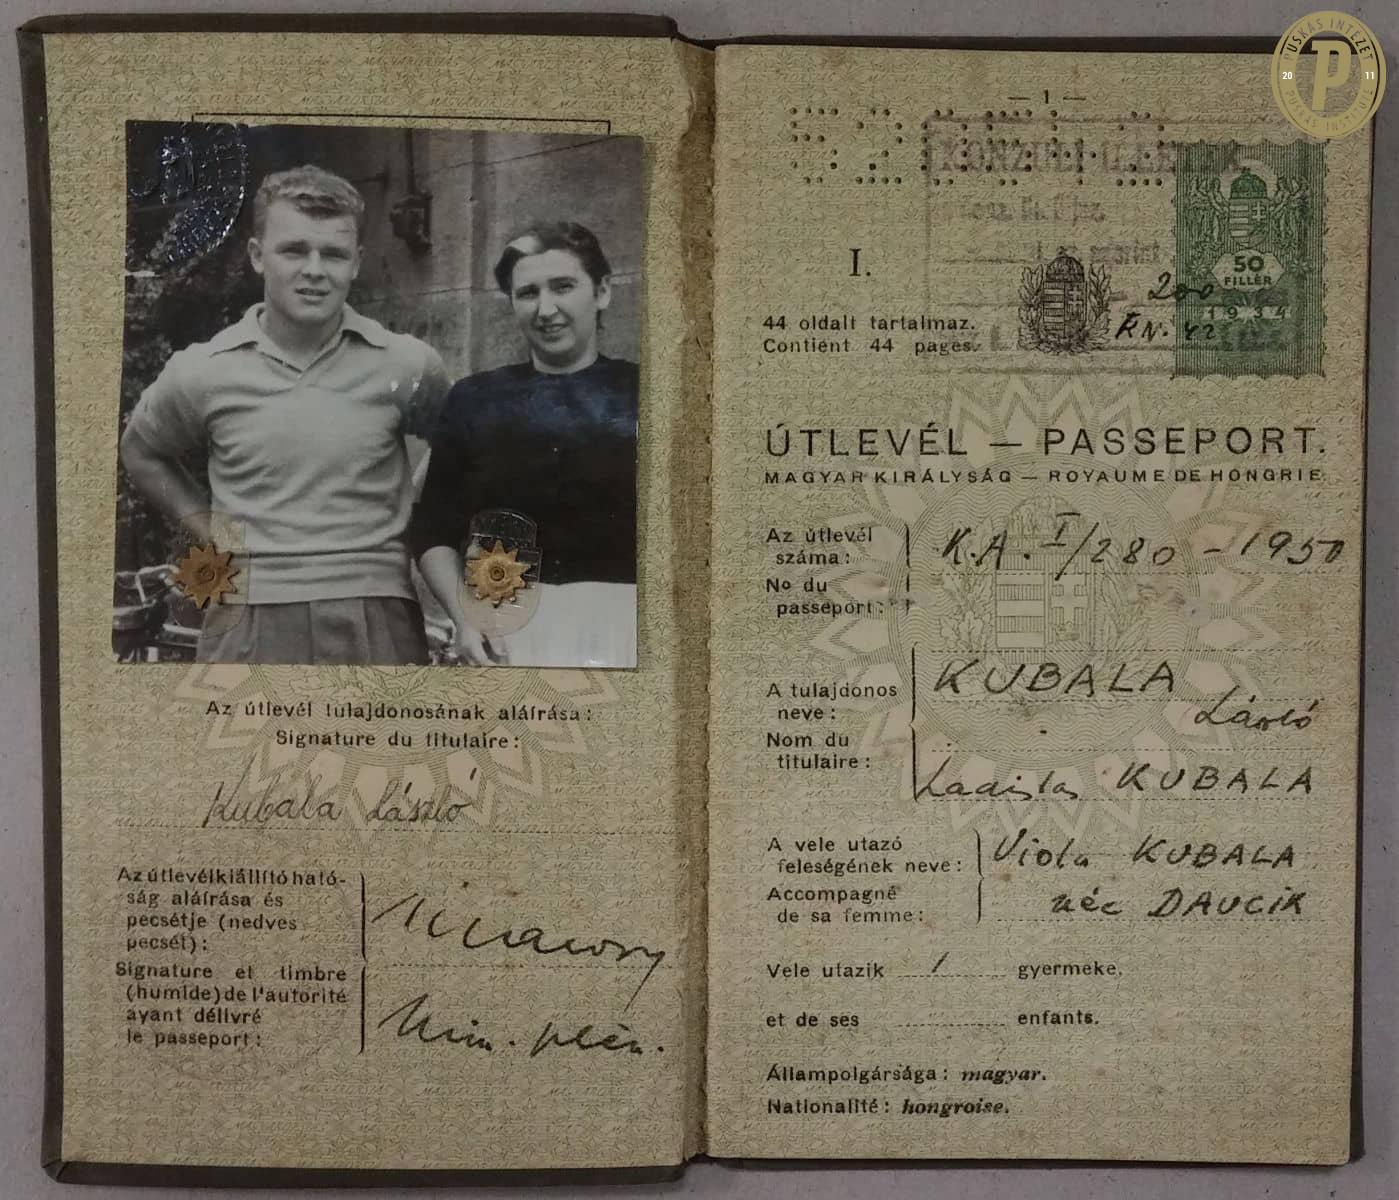 PUSKÁS INTÉZET
20 P 11
PUSKÁS INSTITUTE
Az útlevél tulajdonosának aláírása:
Signature du titulaire:
Kubala László
Az útlevélkiállító ható-
ság aláírása és
pecsétje (nedves
pecsét):
Signature et timbre
(humide) de l'autorité
ayant délivré
le passeport:
Min. plén.
— 1 —
I.
50
FILLÉR
1934
200
44 oldalt tartalmaz.
Contient 44 pages.
ÚTLEVÉL — PASSEPORT.
MAGYAR KIRÁLYSÁG — ROYAUME DE HONGRIE
Az útlevél
száma:
No du
passeport:
K.A. I/280 - 1950
A tulajdonos
neve:
Nom du
titulaire:
KUBALA
László
Ladislas KUBALA
A vele utazó
feleségének neve:
Accompagné
de sa femme:
Viola KUBALA
née DAUCIK
Vele utazik 1 gyermeke.
et de ses enfants.
Állampolgársága: magyar.
Nationalité: hongroise.